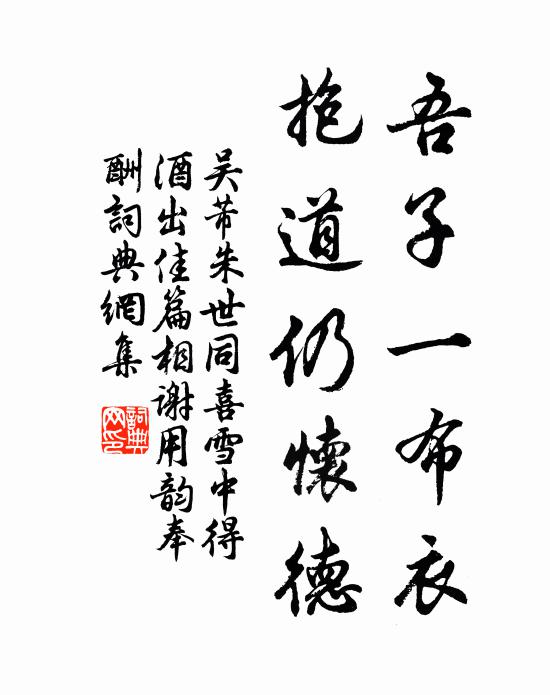 吾子一布衣
抱道仍懷德
吴芾朱世同喜雪中得
酒出佳篇相谢用韵奉
酬詞典網集
詞典网印